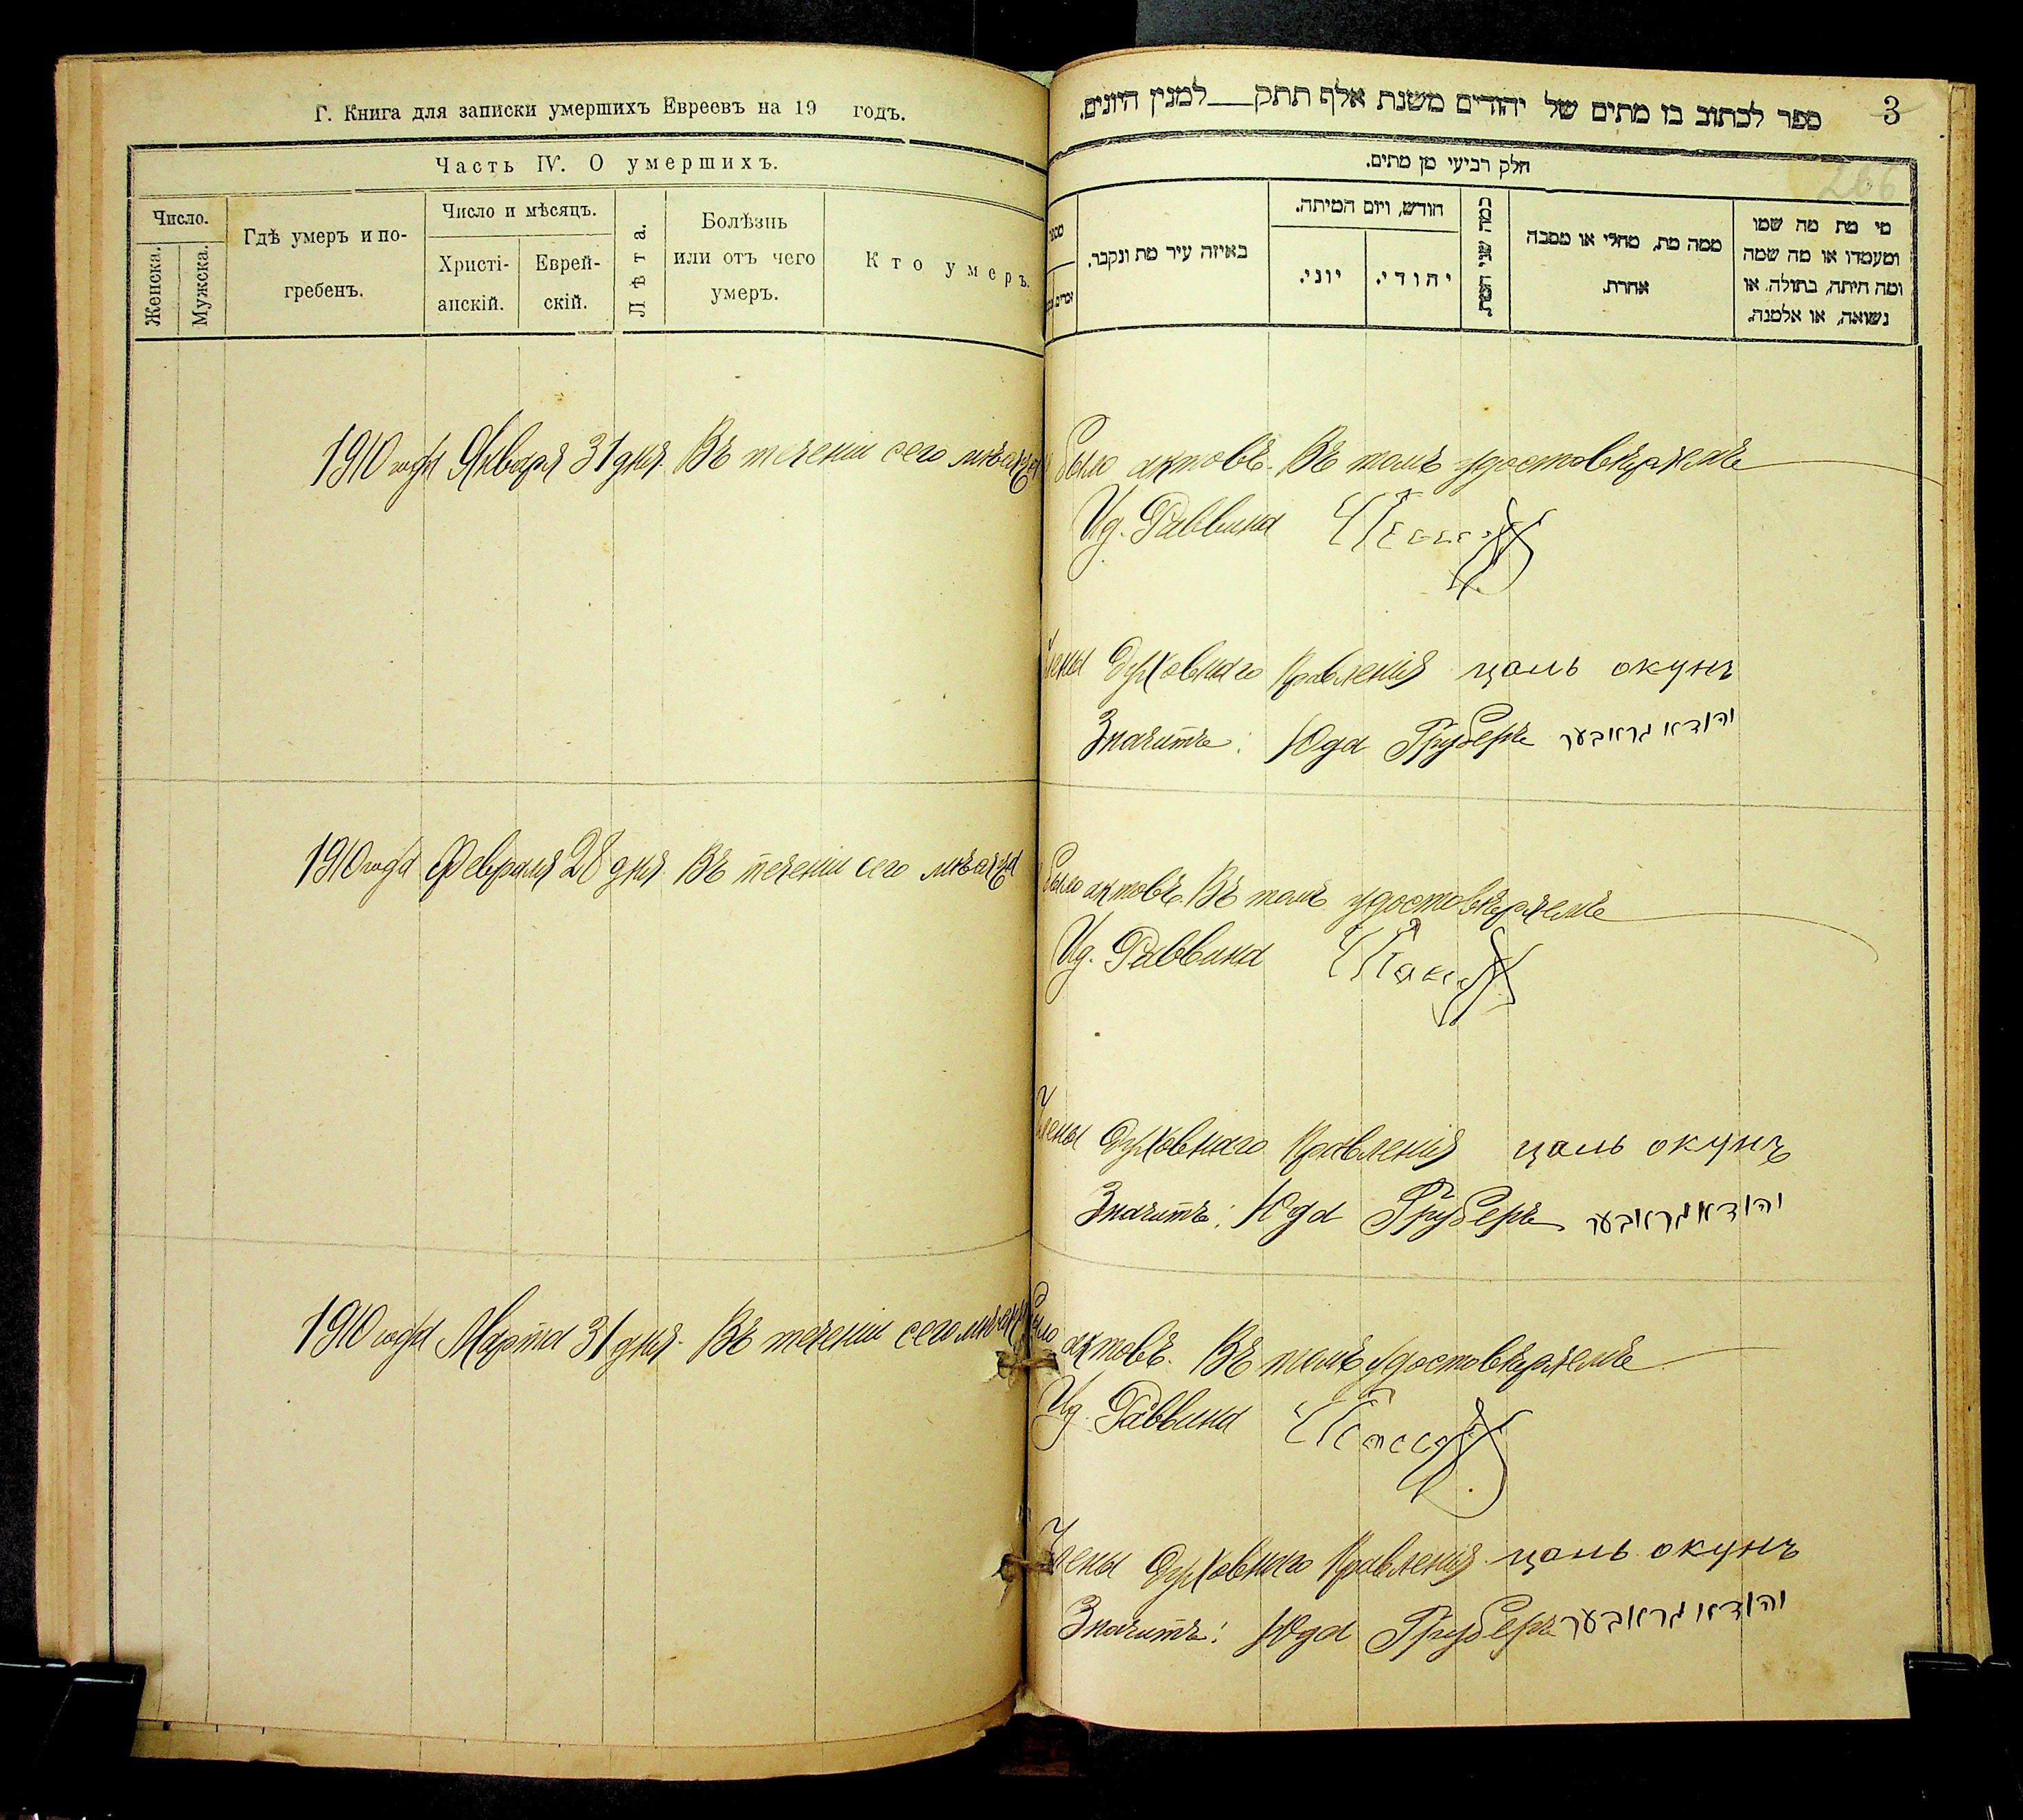 Г. Книга для записки умершихъ Евреевъ на 19 годъ.
Часть IV. О умершихъ.
Число.
Женска.
Мужска.
Гдѣ умеръ и по-
гребенъ.
Число и мѣсяцъ.
Христі-
анскій.
Еврей-
скій.
Лѣта.
Болѣзнь
или отъ чего
умеръ.
Кто умеръ.
3
266
ספר לכתוב בו מתים של יהודים משנת אלף תתק למנין היונים.
חלק רביעי מן מתים.
מי מת מה שמו
ומעמדו או מה שמה
ומה היתה, בתולה, או
נשואה, או אלמנה.
ממה מת, מחלי או מסבה
אחרת.
כמה שני המת.
חודש, ויום המיתה.
יהודי.
יוני.
באיזה עיר מת ונקבר.
מספר
1910 года Января 31 дня. Въ теченіи сего мѣсяца было актовъ. Въ томъ удостовѣряемъ
Ид. Раввина
Члены Духовнаго Правленія цаль окунь
Значитъ: Юда Груберъ יהודא גראבער
1910 года Февраля 28 дня. Въ теченіи сего мѣсяца было актовъ. Въ томъ удостовѣряемъ
Ид. Раввина
Члены Духовнаго Правленія цаль окунъ
Значитъ: Юда Груберъ יהודא גראבער
1910 года Марта 31 дня. Въ теченіи сего мѣсяца было актовъ. Въ томъ удостовѣряемъ
Ид. Раввина
Члены Духовнаго Правленія цаль окунъ
Значитъ: Юда Груберъ יהודא גראבער